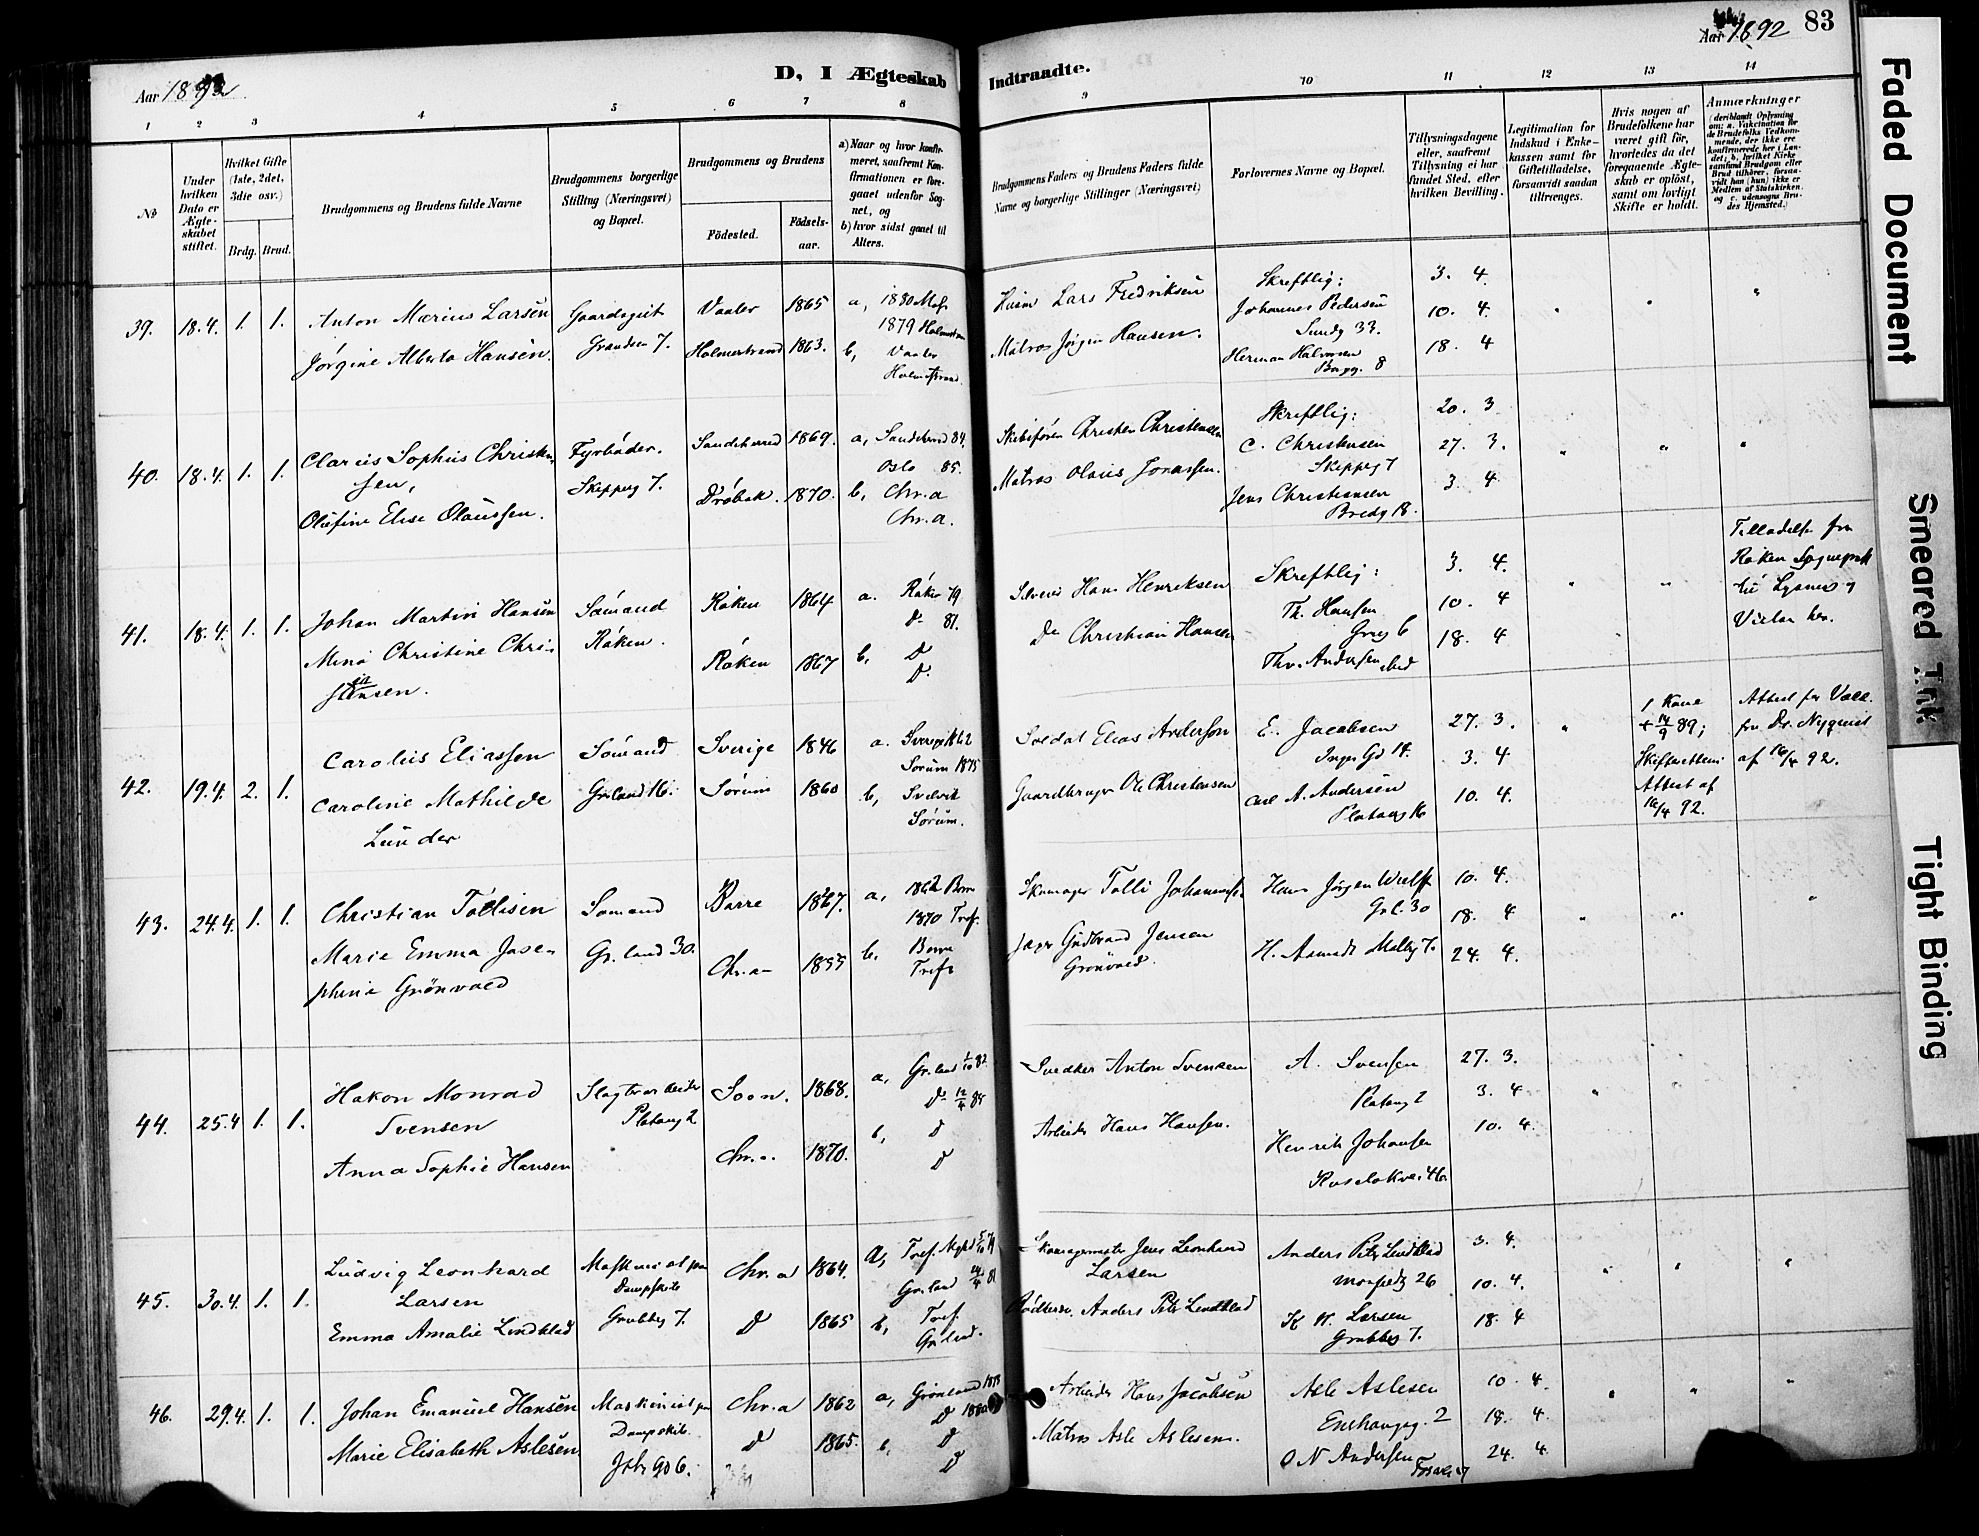 Aar 1892
D, I Ægteskab Indtraadte.
Aar 1892 83
1 2 3 4 5 6 7 8 9 10 11 12 13 14
No
Under hvilken Dato er Ægteskabet stiftet.
Hvilket Gifte (1ste, 2det, 3die osv.)
Brdg. Brud.
Brudgommens og Brudens fulde Navne
Brudgommens borgerlige Stilling (Næringsvei) og Bopæl.
Brudgommens og Brudens
Födested.
Födselsaar.
a) Naar og hvor konfirmeret, saafremt Konfirmationen er foregaaet udenfor Sognet, og
b) hvor sidst gaaet til Alters.
Brudgommens Faders og Brudens Faders fulde Navne og borgerlige Stillinger (Næringsvei)
Forlovernes Navne og Bopæl.
Tillysningsdagene eller, saafremt Tillysning ei har fundet Sted, efter hvilken Bevilling.
Legitimation for Indskud i Enkekassen samt for Giftetilladelse, forsaavidt saadan tiltrænges.
Hvis nogen af Brudefolkene har været gift för, hvorledes da det foregaaende Ægteskab er oplöst, samt om lovligt Skifte er holdt.
Anmærkninger (deriblandt Oplysning om: a. Vakcination for de Brudefolks Vedkommende, der ikke ere konfirmerede her i Landet; b. hvilket Kirkesamfund Brudgom eller Brud tilhörer, forsaavidt han (hun) ikke er Medlem af Statskirken, og c. udensogns Brudes Hjemsted.)
39. 18.4. 1. 1.
Anton Marius Larsen
Jørgine Alberta Hansen.
Gaardsgut
7.
Vaaler 1865
Holmestrand 1863.
a, 1880
1879 Holmestrand
b, Vaaler
Holmestrand.
Lars Fredriksen
Matros Jørgen Hansen.
Skriftlig:
Johannes Pedersen
33.
Herman Halvorsen
8
3. 4.
10. 4.
18. 4
40. 18.4. 1. 1.
Clarius Sophus Christensen,
Olufine Elise Olaussen.
Fyrbøder.
Skipperg 7.
Sandeherred 1869.
Drøbak. 1870.
a, Sandeherred 84.
Oslo 85.
b, Chr.a
Chr.a.
Skibsfører Christen Christensen
Matros Olaus Jonassen.
Skriftlig:
C. Christensen
Skipperg 7
Jens Christiansen
Bredg 18.
20. 3
27. 3.
3. 4
41. 18.4. 1. 1.
Johan Martin Hansen
Mina Christine Christiansen.
Sømand
Røken.
Røken 1864
Røken 1867
a. Røken 79
Do 81.
b, D
D.
Hans Henriksen
Do Christian Hansen
Skriftlig:
Th. Hansen
6
Thv. Andersen
3. 4.
10. 4
18. 4
Tilladelse fra
Røken Sognepræst
til Lysning og
Vielse her.
42. 19.4. 2. 1.
Carolus Eliassen
Caroline Mathilde
Lunder
Sømand
Grønland 16.
Sverige 1846
Sørum 1860
a. Sverige 1862
Sørum 1875
b, Svelvik
Sørum.
Soldat Elias Andersson
Gaardbruger Ole Christensen
E. Jacobsen
14.
Carl A. Andersen
Platoug 16
27. 3.
3. 4
10. 4.
1 Kone
+ 14/9 89;
Attest af
16/4 92.
Attest for Vacc.
fra Dr. Nyquist
af 16/4 92.
43. 24.4. 1. 1.
Christian Tollisen
Marie Emma Josephine
Grønvold
Sømand
Gr.land 30.
Borre 1867.
Chr.a 1855
a, 1862 Borre
1870 Tref.
b. Borre
Tref.
Skomager Tolli Johannesen
Gudbrand Jensen
Grønvold.
Hans Jørgen Wulff
Grl. 30
H. Møllerg 7.
10. 4.
18. 4
24. 4.
44. 25.4 1. 1.
Hakon Monrad
Svensen
Anna Sophie Hansen
Slagteriarbeider
Platoug 2
Soon. 1868.
Chr.a. 1870.
a, Gr.land 1/10 82.
Do 12/4 85
b, D
D
Snedker Anton Svensen
Arbeider Hans Hansen.
A. Svensen
Platoug 2
Henrik Johansen
Ruseløkvei 46.
27. 3.
3. 4
10. 4.
45. 30.4. 1. 1.
Ludvig Leonhard
Larsen
Emma Amalie Lindblad
Maskinist paa
Dampskib
Grubbeg 7.
Chr.a 1864.
D 1865
a, Tref. 5/10 79
Gr.land 24/4 81
b, Tref.
Gr.land.
Skomagermester Jens Leonhard
Larsen
Anders Petr Lindblad
Anders Petr Lindblad
26
K. H. Larsen
Grubbeg 7.
3. 4.
10. 4.
18. 4
46. 29.4. 1. 1.
Johan Emanuel Hansen
Marie Elisabeth Aslesen
Maskinist paa
Dampskib.
6.
Chr.a 1862
D 1865.
a, Grønland 1878
D 1880
b, D
D
Arbeider Hans Jacobsen
Matros Asle Aslesen.
Asle Aslesen
Enerhaugg. 2
O N Andersen
10. 4.
18. 4.
24. 4.
Faded Document
Smeared Ink
Tight Binding